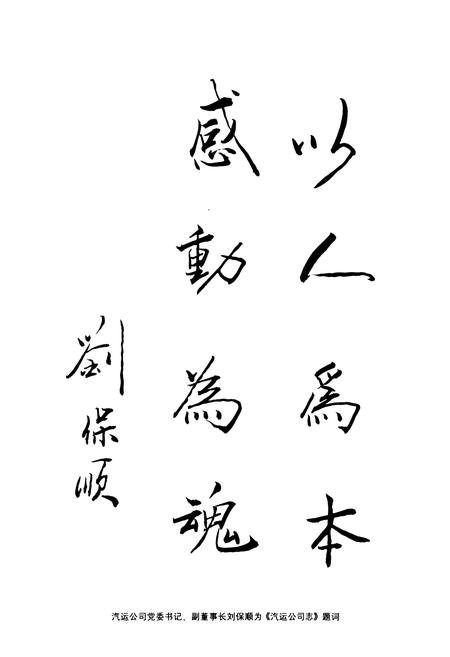 以人爲本
感動為魂
劉保順
汽运公司党委书记、副董事长刘保顺为《汽运公司志》题词